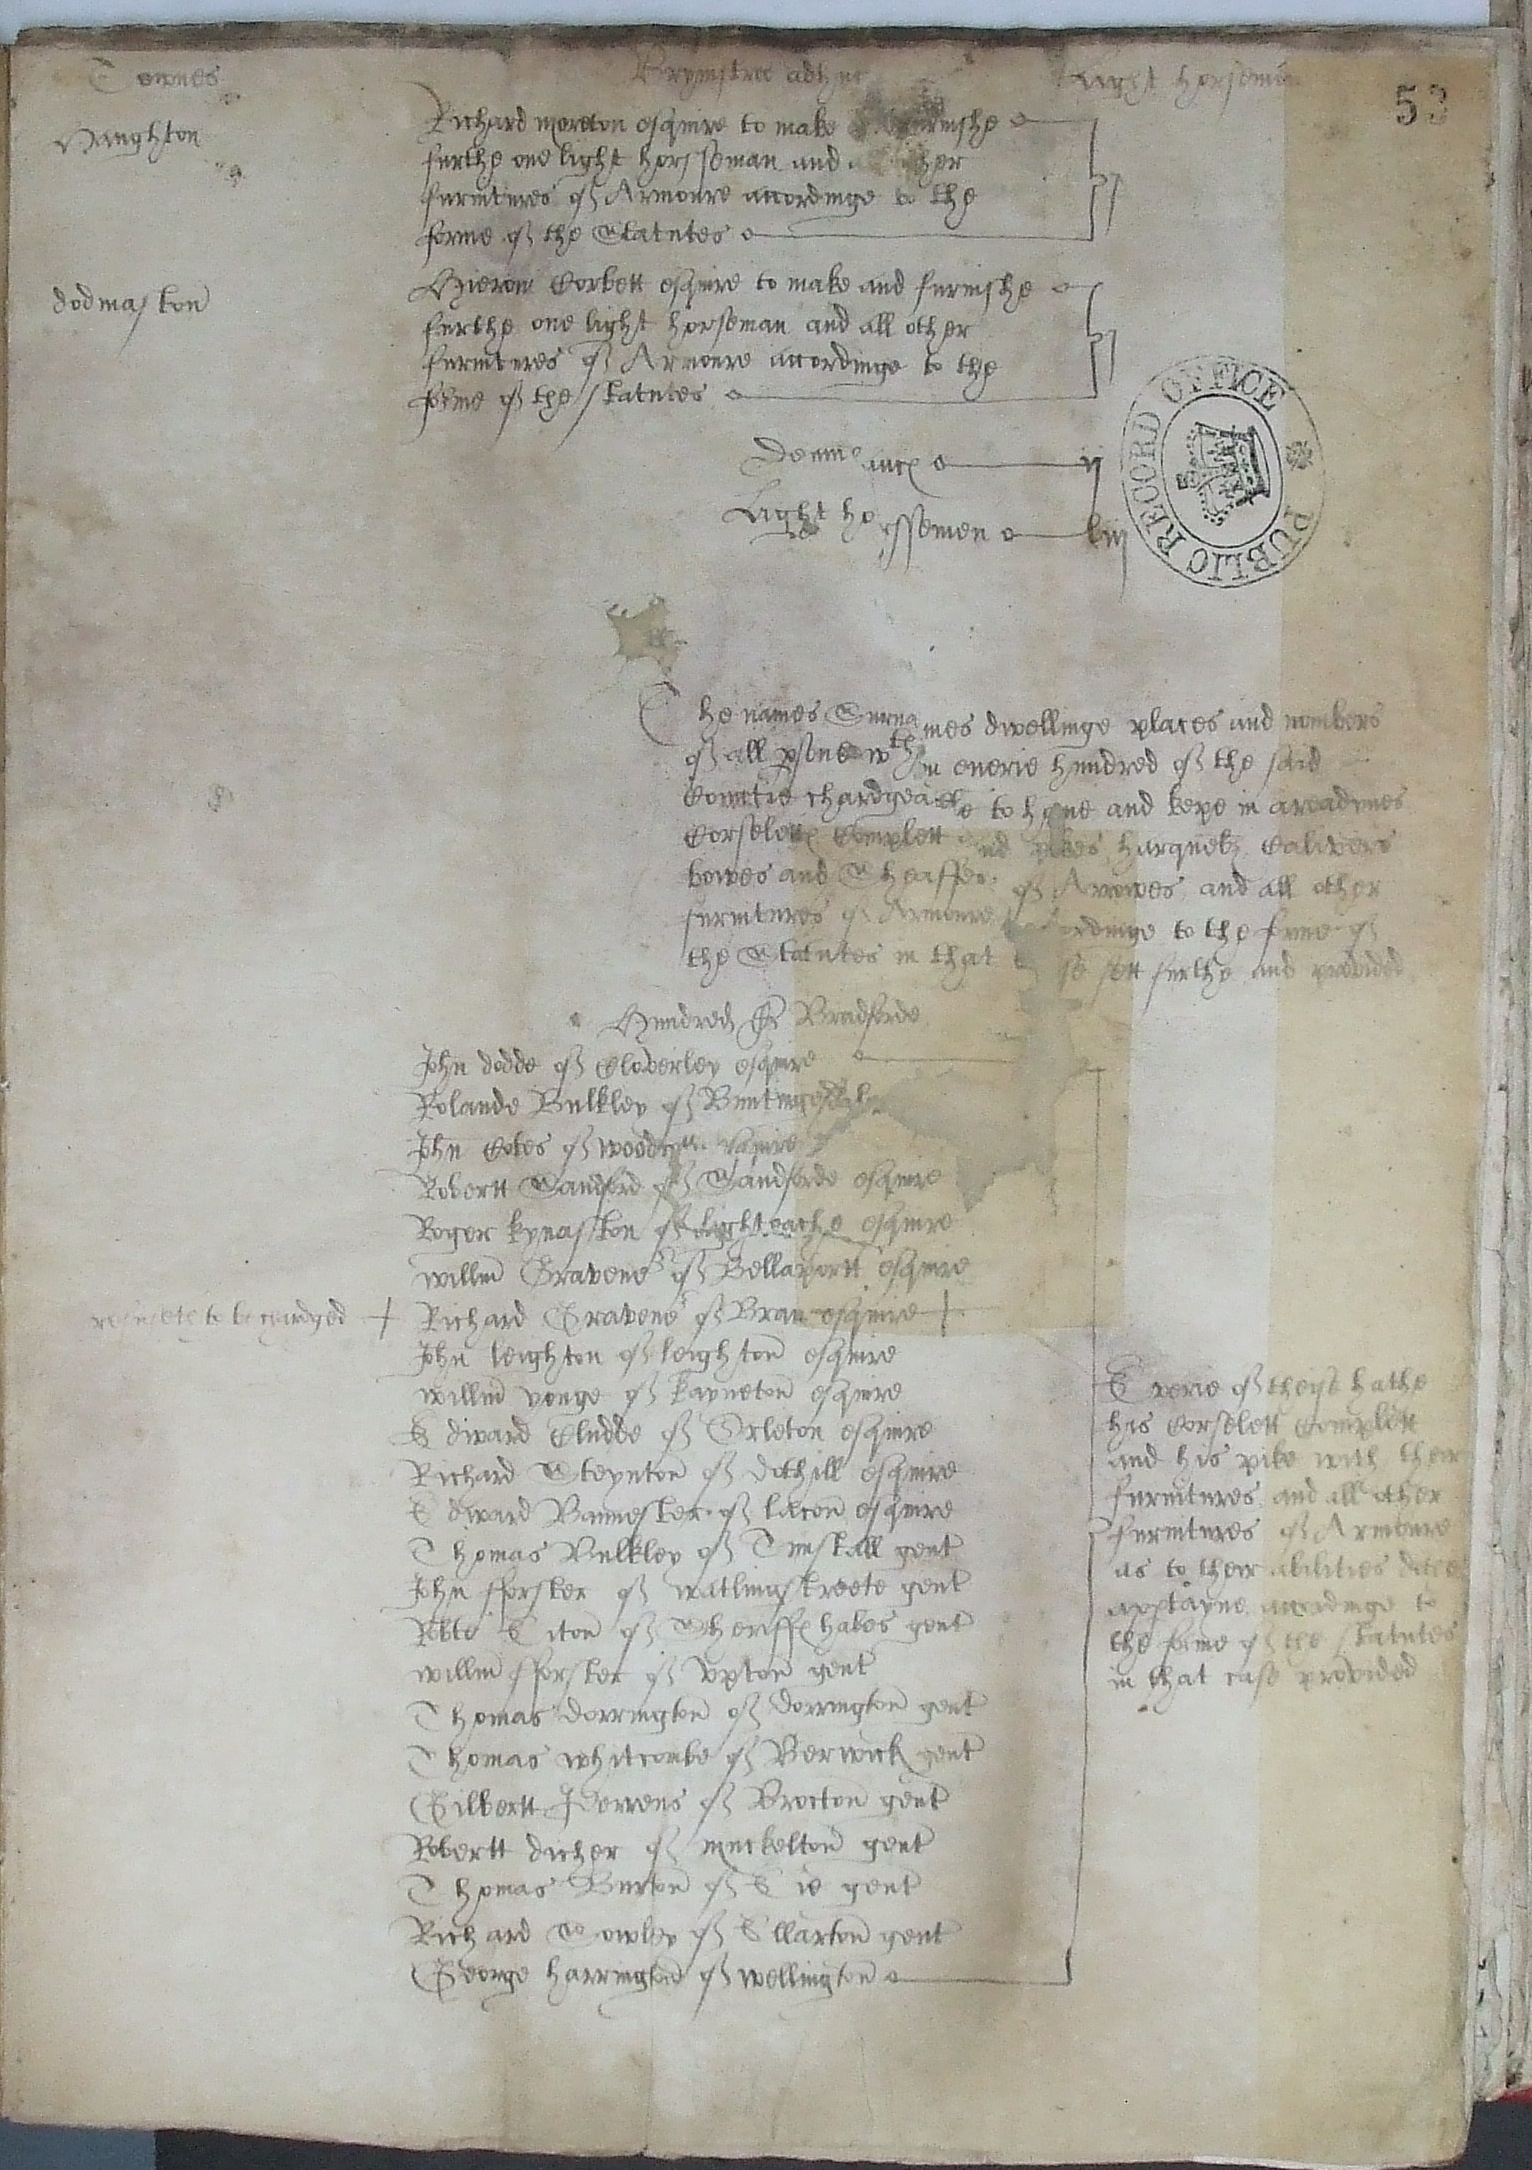 Townes
Brymstree adhuc
Light horsemen
53
Haughton
Richard moreton esquire to make furnishe
furthe one light horsseman and all other
furnitures of Armoure accordinge to the
forme of the Statutes
j
dodmaston
Hierom Corbett esquire to make and furnishe
furthe one light horseman and all other
furnitures of Armoure accordinge to the
forme of the statutes
j
PUBLIC RECORD OFFICE
ij
Light horssemen
The names Surnames dwellinge places and nombers
of all psons wth in euerie hundred of the said
Countie chardgeable to haue and kepe in areadines
Corselett Complett and pikes harquebz Calivers
bowes and Sheaffes of Arrowes and all other
furnitures of Armoure accordinge to the forme of
the Statutes in that so sett furthe and provided
Hundred of Bradforde
John dodde of Cloverley esquire
Rolande Bulkley of Buntingesdale
John Cotes of woodcott esquire
Robertt Sandford of Sandforde esquire
Roger kynaston of lighteache esquire
willm Gravenor of Bellaportt esquire
refuseth to be chardged + Richard Gravenor of Bran esquire +
John leighton of leighton esquire
willm yonge of kayneton esquire
Edward Cludde of Orleton esquire
Richard Steynton of dothill esquire
Edward Bannester of lacon esquire
Thomas Bulkley of Tunstall gent
John fforster of watlingstreete gent
Robte Eiton of Sheriff hales gent
willm fforster of vpton gent
Thomas dorrington of dorrington gent
Thomas whitcombe of Berwick gent
Gilbertt Jervens of Brocton gent
Robertt dicher of muckelton gent
Thomas Burton of gent
Richard Sowley of Ellarton gent
George harrington of wellington
Everie of theise hathe
his Corselett Complett
and his pike with their
furnitures and all other
furnitures of Armoure
as to their abilities dothe
apptayne accordinge to
the forme of the statutes
in that case provided